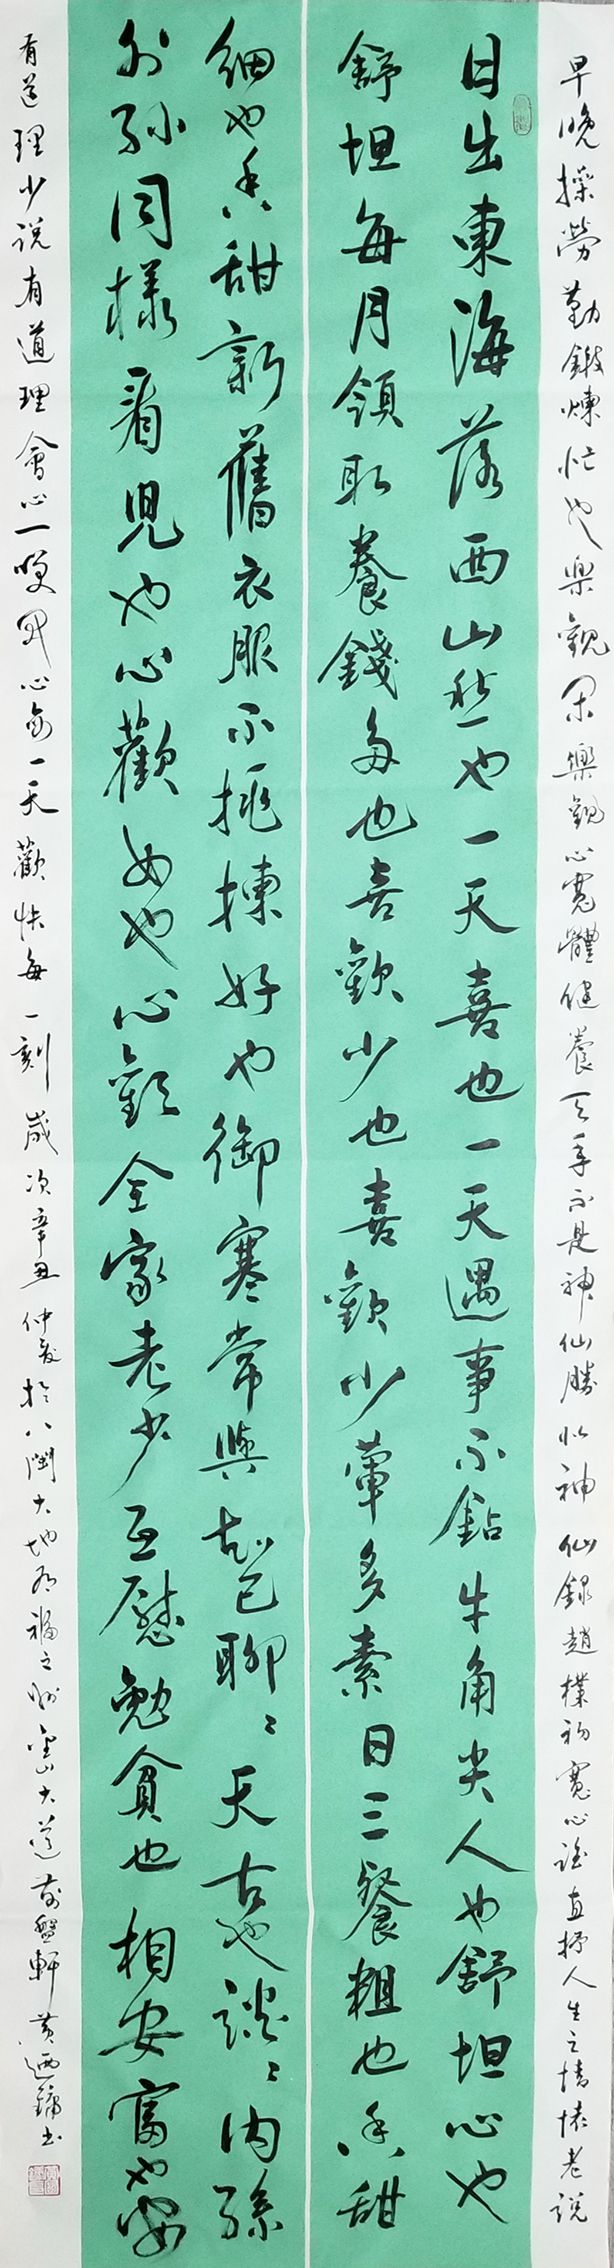 日出東海落西山愁也一天喜也一天遇事不鉆牛角尖人也舒坦心也
舒坦每月領取養錢多也喜歡少也喜歡少葷多素日三餐粗也香甜
細也香甜新舊衣服不挑揀好也御寒常與知己聊聊天古也談談內孫
外孫同樣看兒也心歡女也心歡全家老少互慰勉貧也相安富也安
早晚操勞勤鍛煉忙也樂觀閑樂觀心寬體健養天年不是神仙勝似神仙錄趙樸初寬心謠直抒人生之情懷老說
有道理少說有道理會心一笑心每一天歡快每一刻歲次辛丑仲夏於八閩大地有福之州金山大道磐軒黃迺鏞書